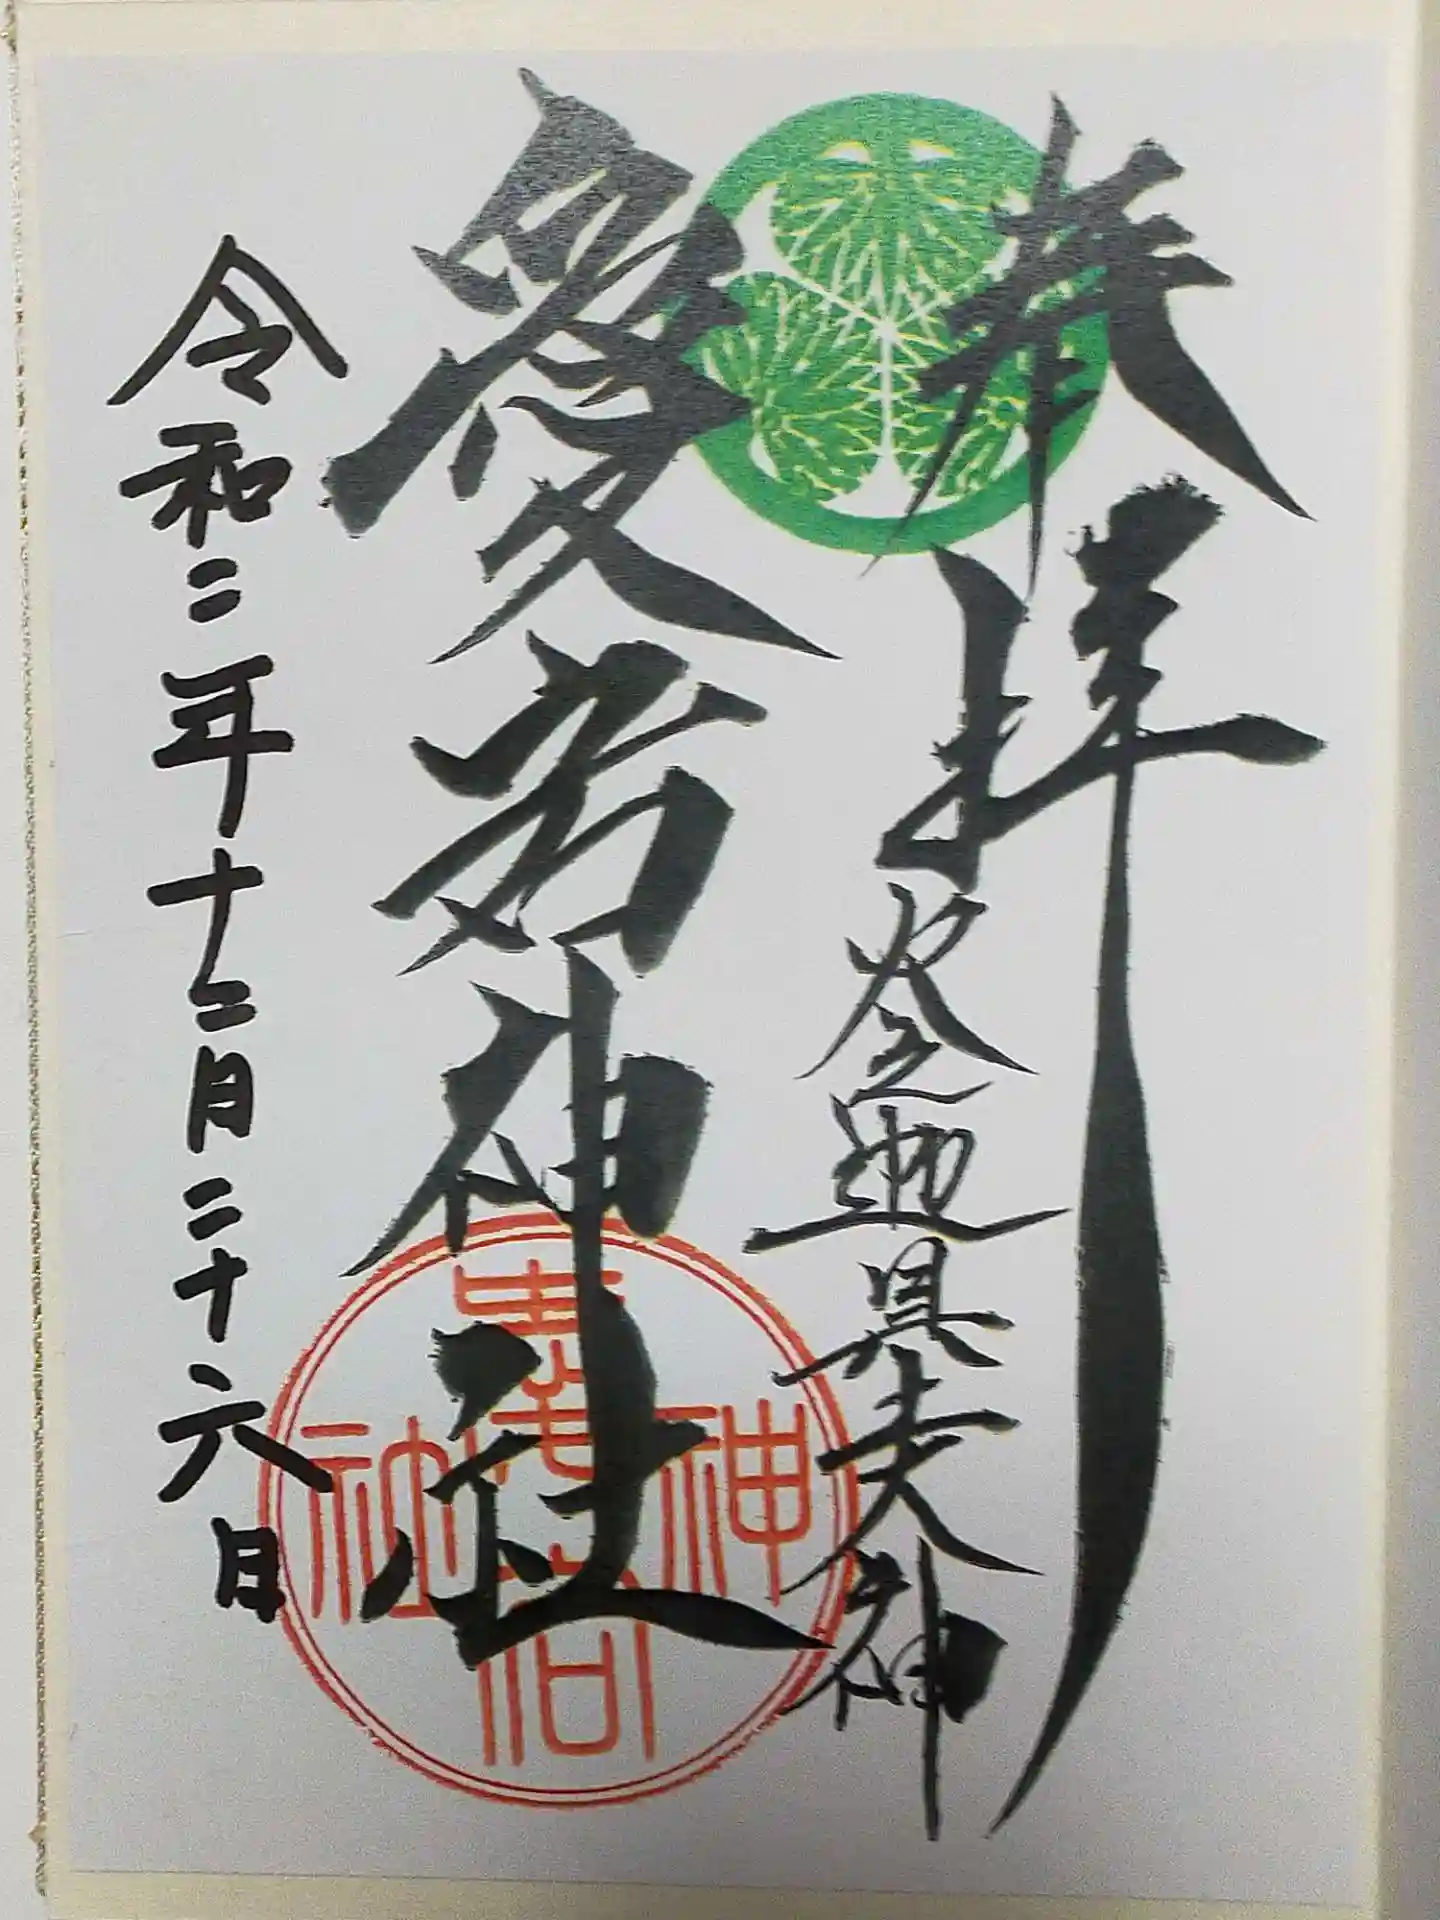 奉拝
火之迦具土大神
愛宕神社
愛宕神社
令和二年十二月二十六日